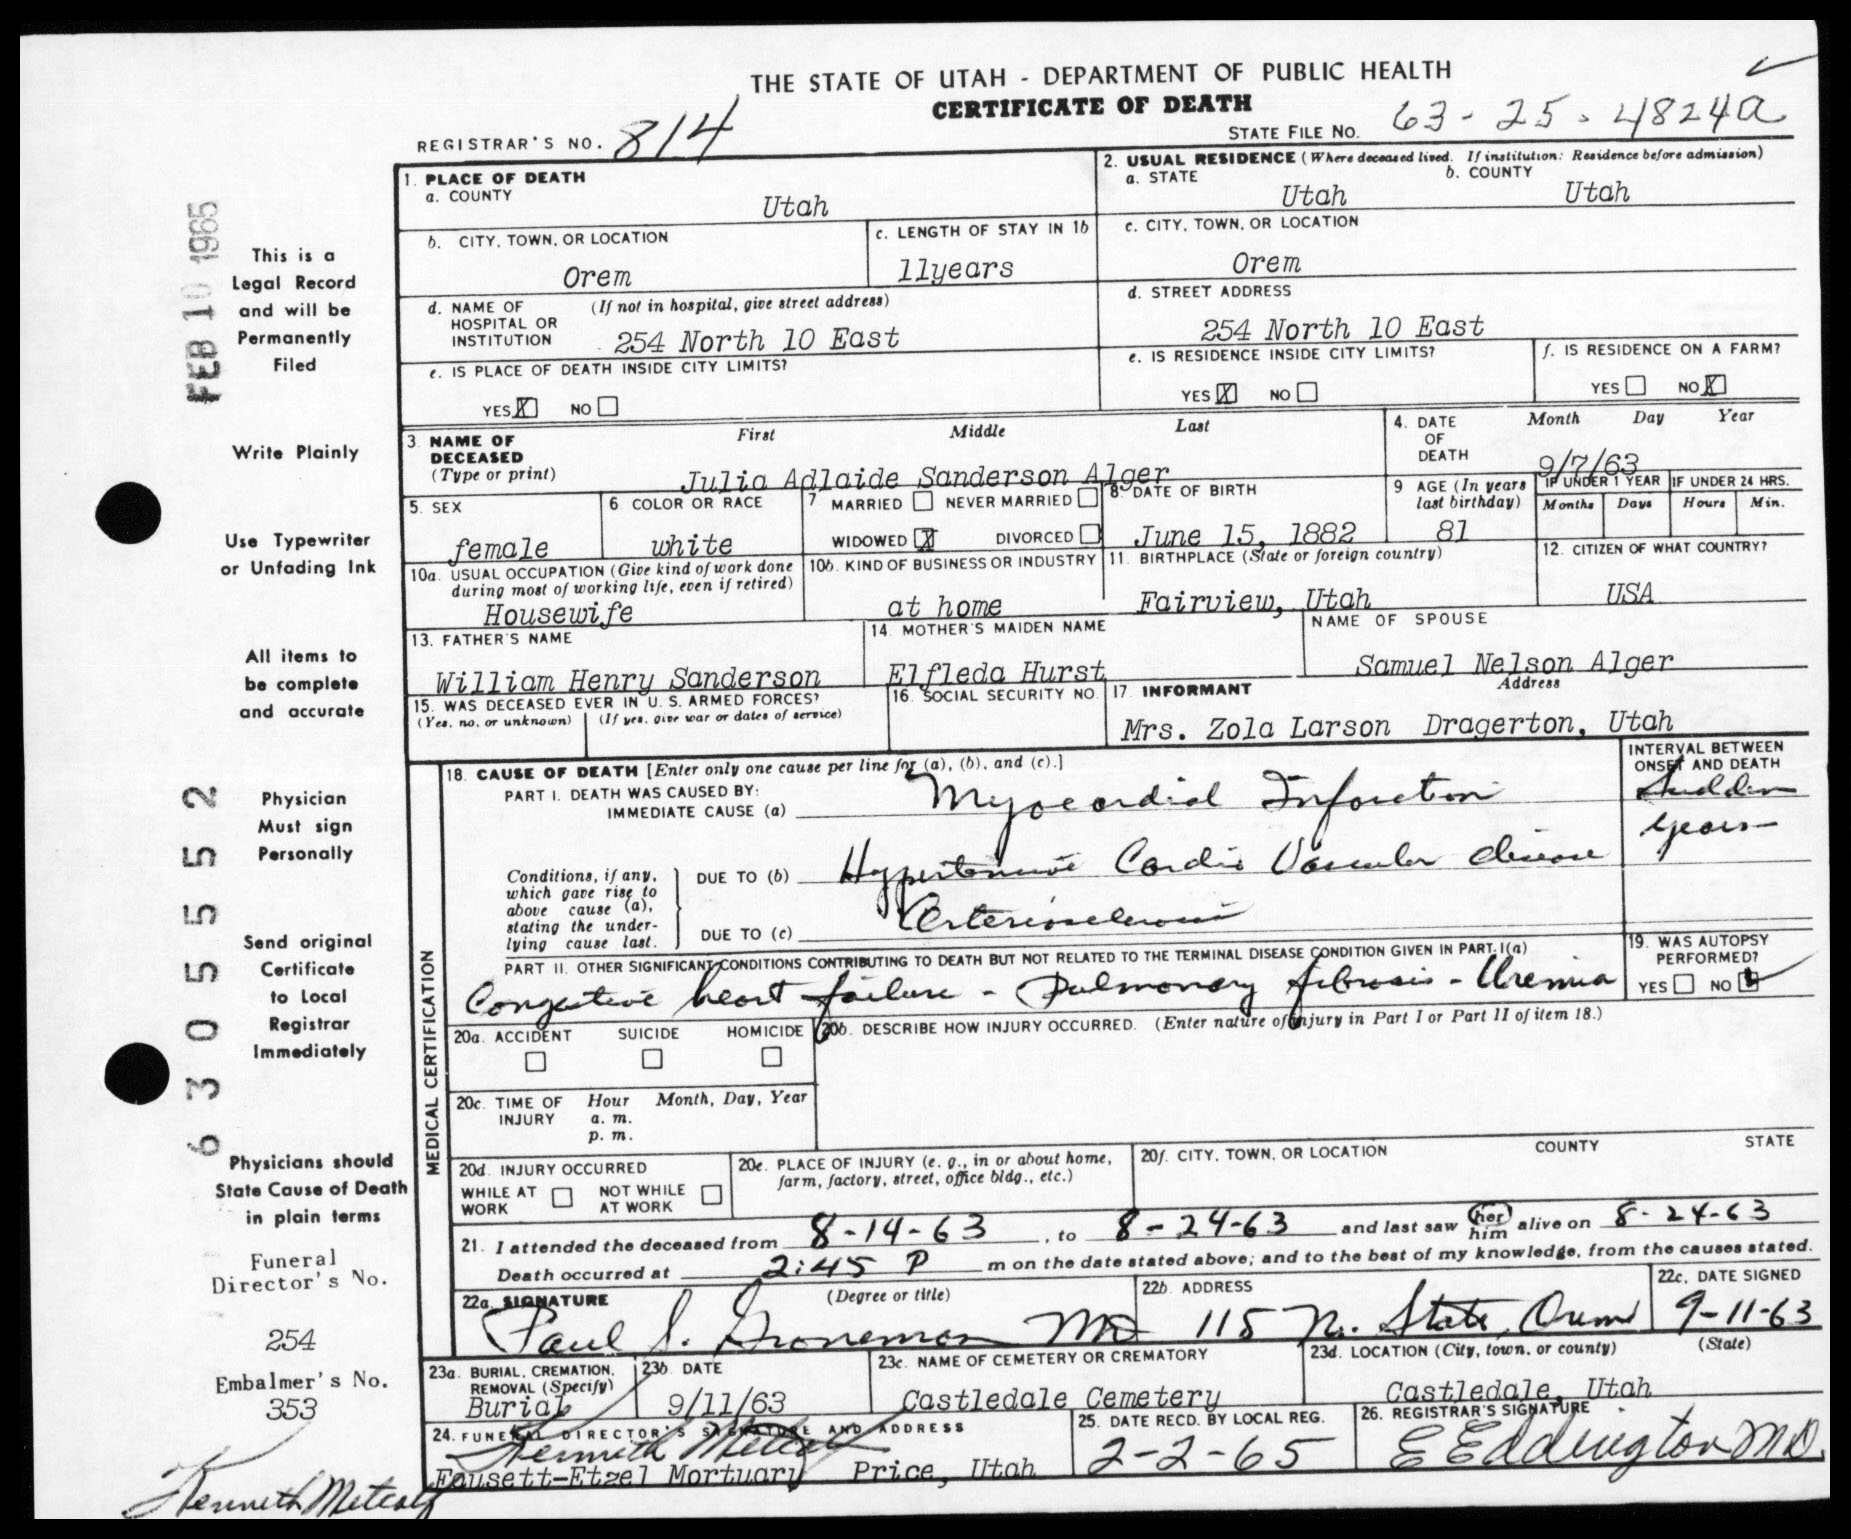 THE STATE OF UTAH - DEPARTMENT OF PUBLIC HEALTH
CERTIFICATE OF DEATH
REGISTRAR'S NO. 814
STATE FILE NO. 63-25-4824a
1. PLACE OF DEATH
a. COUNTY
Utah
2. USUAL RESIDENCE (Where deceased lived. If institution: Residence before admission)
a. STATE b. COUNTY
Utah Utah
b. CITY, TOWN, OR LOCATION
Orem
c. LENGTH OF STAY IN 1b
11years
c. CITY, TOWN, OR LOCATION
Orem
d. NAME OF HOSPITAL OR INSTITUTION (If not in hospital, give street address)
254 North 10 East
d. STREET ADDRESS
254 North 10 East
e. IS PLACE OF DEATH INSIDE CITY LIMITS?
YES X NO
e. IS RESIDENCE INSIDE CITY LIMITS?
YES X NO
f. IS RESIDENCE ON A FARM?
YES NO X
3. NAME OF DECEASED (Type or print)
First Middle Last
Julia Adlaide Sanderson Alger
4. DATE OF DEATH
Month Day Year
9/7/63
5. SEX
female
6 COLOR OR RACE
white
7 MARRIED NEVER MARRIED
WIDOWED X DIVORCED
8. DATE OF BIRTH
June 15, 1882
9 AGE (In years last birthday)
81
IF UNDER 1 YEAR IF UNDER 24 HRS.
Months Days Hours Min.
10a. USUAL OCCUPATION (Give kind of work done during most of working life, even if retired)
Housewife
10b. KIND OF BUSINESS OR INDUSTRY
at home
11. BIRTHPLACE (State or foreign country)
Fairview, Utah
12. CITIZEN OF WHAT COUNTRY?
USA
13. FATHER'S NAME
William Henry Sanderson
14. MOTHER'S MAIDEN NAME
Elfleda Hurst
NAME OF SPOUSE
Samuel Nelson Alger
15. WAS DECEASED EVER IN U. S. ARMED FORCES?
(Yes, no, or unknown) (If yes, give war or dates of service)
16. SOCIAL SECURITY NO.
17. INFORMANT Address
Mrs. Zola Larson Dragerton, Utah
MEDICAL CERTIFICATION
18. CAUSE OF DEATH [Enter only one cause per line for (a), (b), and (c).]
INTERVAL BETWEEN ONSET AND DEATH
PART I. DEATH WAS CAUSED BY:
IMMEDIATE CAUSE (a) Myocardial Infarction Sudden
years
Conditions, if any, which gave rise to above cause (a), stating the underlying cause last.
DUE TO (b) Hypertensive Cardio Vascular disease
DUE TO (c) Arteriosclerosis
PART II. OTHER SIGNIFICANT CONDITIONS CONTRIBUTING TO DEATH BUT NOT RELATED TO THE TERMINAL DISEASE CONDITION GIVEN IN PART I(a)
Congestive heart failure - Pulmonary fibrosis - Uremia
19. WAS AUTOPSY PERFORMED?
YES NO
20a. ACCIDENT SUICIDE HOMICIDE
20b. DESCRIBE HOW INJURY OCCURRED. (Enter nature of injury in Part I or Part II of item 18.)
20c. TIME OF INJURY Hour Month, Day, Year
a. m.
p. m.
20d. INJURY OCCURRED
WHILE AT WORK NOT WHILE AT WORK
20e. PLACE OF INJURY (e. g., in or about home, farm, factory, street, office bldg., etc.)
20f. CITY, TOWN, OR LOCATION COUNTY STATE
21. I attended the deceased from 8-14-63, to 8-24-63 and last saw her him alive on 8-24-63
Death occurred at 2:45 P m on the date stated above; and to the best of my knowledge, from the causes stated.
22a. SIGNATURE (Degree or title)
Paul S. Groneman MD
22b. ADDRESS
115 N. State, Orem
22c. DATE SIGNED
9-11-63
23a. BURIAL, CREMATION, REMOVAL (Specify)
Burial
23b. DATE
9/11/63
23c. NAME OF CEMETERY OR CREMATORY
Castledale Cemetery
23d. LOCATION (City, town, or county) (State)
Castledale, Utah
24. FUNERAL DIRECTOR'S SIGNATURE AND ADDRESS
Kenneth Metcalf
Fausett-Etzel Mortuary Price, Utah
25. DATE RECD. BY LOCAL REG.
2-2-65
26. REGISTRAR'S SIGNATURE
E Eddington M.D.
FEB 10 1965
This is a
Legal Record
and will be
Permanently
Filed
Write Plainly
Use Typewriter
or Unfading Ink
All items to
be complete
and accurate
Physician
Must sign
Personally
Send original
Certificate
to Local
Registrar
Immediately
Physicians should
State Cause of Death
in plain terms
Funeral
Director's No.
254
Embalmer's No.
353
Kenneth Metcalf
63055552